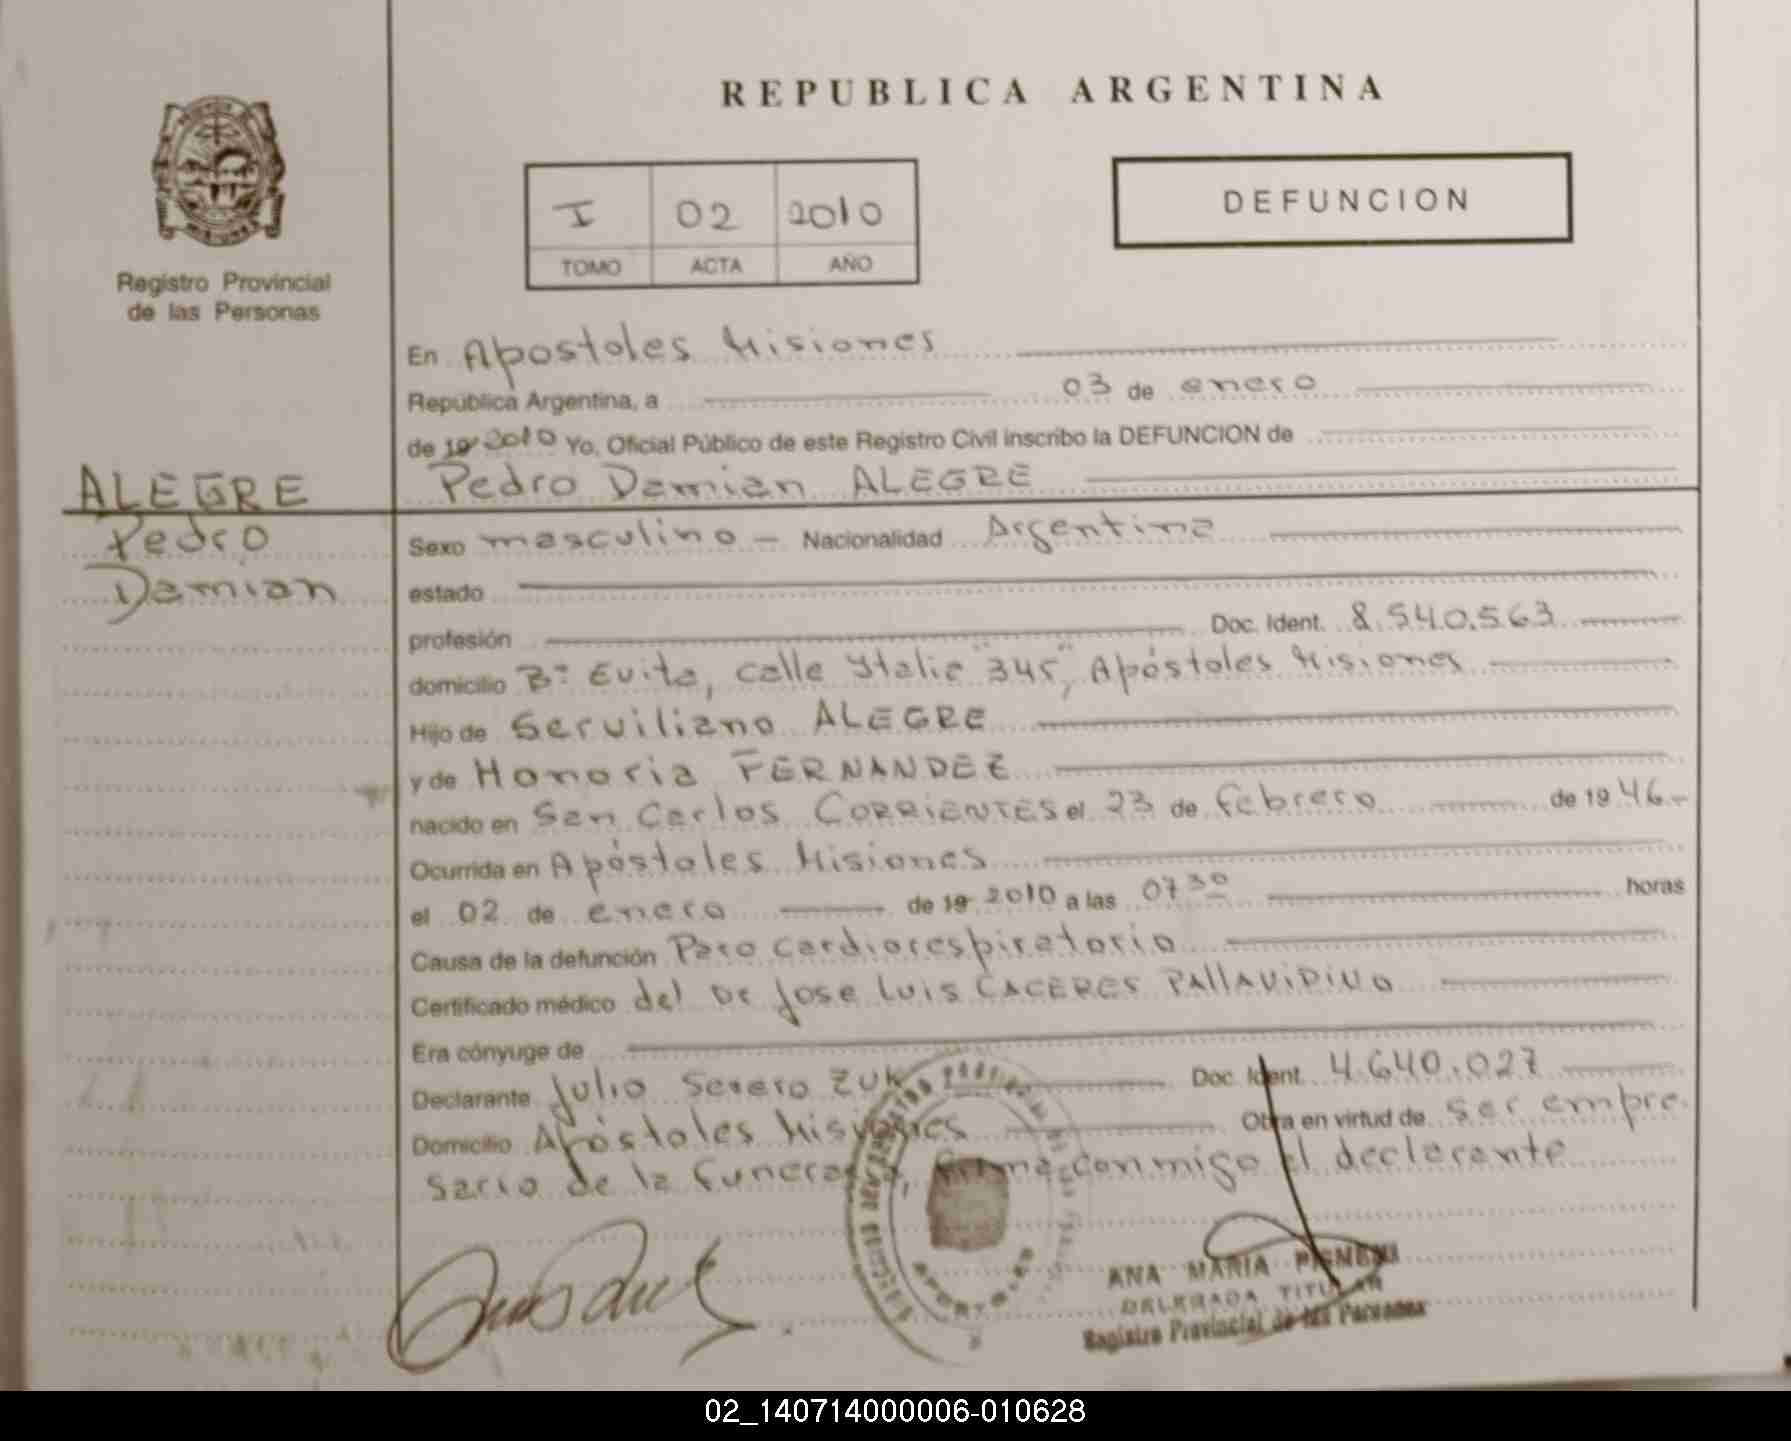 REPUBLICA ARGENTINA
I 02 2010
TOMO ACTA AÑO
DEFUNCION
Registro Provincial
de las Personas
ALEGRE
Pedro
Damian
En Apostoles Misiones
República Argentina, a 03 de enero
de 19 2010 Yo, Oficial Público de este Registro Civil inscribo la DEFUNCION de
Pedro Damian ALEGRE
Sexo masculino - Nacionalidad Argentina
estado
profesión Doc. Ident. 8.540.563
domicilio Bº Evita, calle Italia "345", Apóstoles Misiones
Hijo de Serviliano ALEGRE
y de Honoria FERNANDEZ
nacido en San Carlos CORRIENTES el 23 de febrero de 19 46.-
Ocurrida en Apóstoles Misiones
el 02 de enero de 19 2010 a las 07 30 horas
Causa de la defunción Paro cardiorespiratorio
Certificado médico del Dr Jose Luis CACERES PALLAVIDINO
Era cónyuge de
Declarante Julio Severo ZUK Doc. Ident. 4.640.027
Domicilio Apóstoles Misiones Obra en virtud de ser empre
sario de la funeraria, firma conmigo el declarante
APOSTOLES
ANA MARIA
DELEGADA TITULAR
Registro Provincial de las Personas
02_140714000006-010628